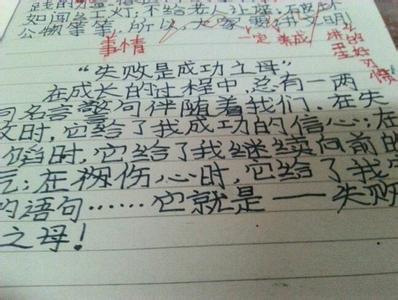 践的
如闯红灯,不给老人让座,
公物等等,所以,大家要讲文明
事情
一定 养成
的好习惯
“失败是成功之母”
在成长的过程中,总有一两
句名言警句伴随着我们.在失
败时,它给了我成功的信心;在
陷时,它给了我继续向前的
气;在我伤心时,它给了我
的语句……它就是——失败
之母!